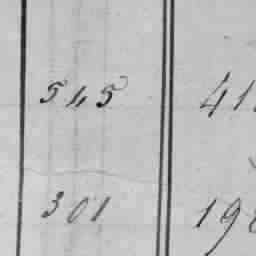 545 41
301 19